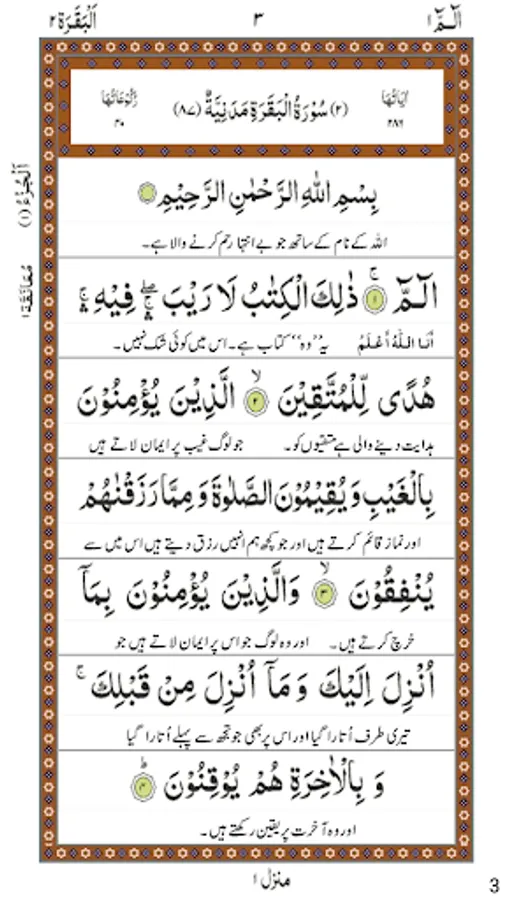 الٓمّٓ ۱ ۳ اَلْبَقَرَة ۲
اٰیَاتُهَا ۲۸۷ (۲) سُوْرَةُ الْبَقَرَةِ مَدَنِيَّةٌ (۸۷) رُكُوْعَاتُهَا ۴۰
اَلْجُزْءُ (۱)
مُعَانَقَة ۱
بِسْمِ اللّٰهِ الرَّحْمٰنِ الرَّحِيْمِ ۱
اللہ کے نام کے ساتھ جو بے انتہا رحم کرنے والا ہے۔
الٓمّٓ ۚ ۱ ذٰلِكَ الْكِتٰبُ لَا رَيْبَ ۛۖ فِيْهِ ۛۚ
اَنَا اللّٰهُ اَعْلَمُ یہ ”وہ“ کتاب ہے۔ اس میں کوئی شک نہیں۔
هُدًى لِّلْمُتَّقِيْنَ ۙ ۲ الَّذِيْنَ يُؤْمِنُوْنَ
ہدایت دینے والی ہے متقیوں کو۔ جو لوگ غیب پر ایمان لاتے ہیں
بِالْغَيْبِ وَ يُقِيْمُوْنَ الصَّلٰوةَ وَ مِمَّا رَزَقْنٰهُمْ
اور نماز قائم کرتے ہیں اور جو کچھ ہم انہیں رزق دیتے ہیں اس میں سے
يُنْفِقُوْنَ ۙ ۳ وَالَّذِيْنَ يُؤْمِنُوْنَ بِمَاۤ
خرچ کرتے ہیں۔ اور وہ لوگ جو اس پر ایمان لاتے ہیں جو
اُنْزِلَ اِلَيْكَ وَ مَاۤ اُنْزِلَ مِنْ قَبْلِكَ ۚ
تیری طرف اُتارا گیا اور اس پر بھی جو تجھ سے پہلے اُتارا گیا
وَ بِالْاٰخِرَةِ هُمْ يُوْقِنُوْنَ ؕ ۴
اور وہ آخرت پر یقین رکھتے ہیں۔
منزل ۱
3